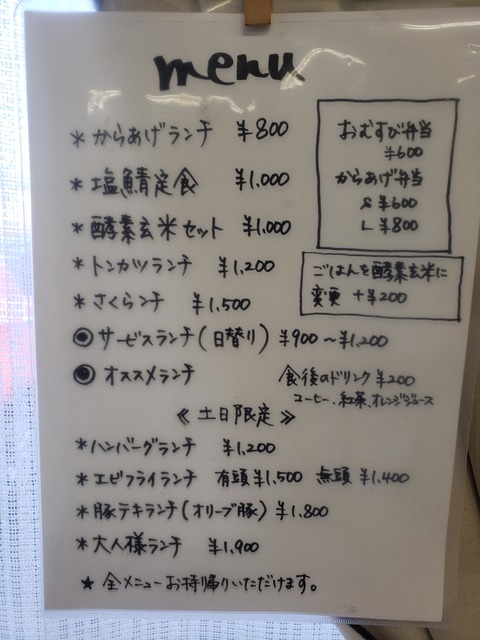 menu
* からあげランチ ¥800
* 塩鯖定食 ¥1.000
* 酵素玄米セット ¥1.000
* トンカツランチ ¥1,200
* さくランチ ¥1,500
◎ サービスランチ(日替り) ¥900〜¥1,200
◎ オススメランチ
食後のドリンク ¥200
コーヒー、紅茶、オレンジジュース
おむすび弁当
¥600
からあげ弁当
S ¥600
L ¥800
ごはんを酵素玄米に
変更 +¥200
≪ 土日限定 ≫
* ハンバーグランチ ¥1,200
* エビフライランチ 有頭 ¥1,500 無頭 ¥1,400
* 豚テキランチ(オリーブ豚) ¥1.800
* 大人様ランチ ¥1,900
★ 全メニューお持帰りいただけます。